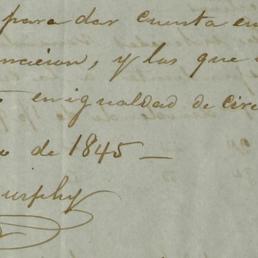 para dar cuenta en
y las que
en igualdad de cir
o de 1845 —
urphy